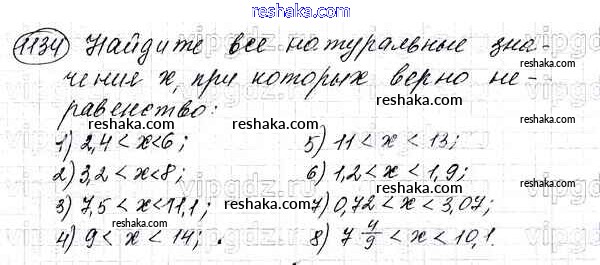 reshaka.com
1134 Найдите все натуральные зна-
чения x, при которых верно не-
равенство:
1) 2,4 < x < 6; 5) 11 < x < 13;
2) 3,2 < x < 8; 6) 1,2 < x < 1,9;
3) 7,5 < x < 11,1; 7) 0,72 < x < 3,07;
4) 9 < x < 14; 8) 7 4/9 < x < 10,1.
reshaka.com
reshaka.com
reshaka.com
reshaka.com
reshaka.com
reshaka.com
reshaka.com
reshaka.com
reshaka.com